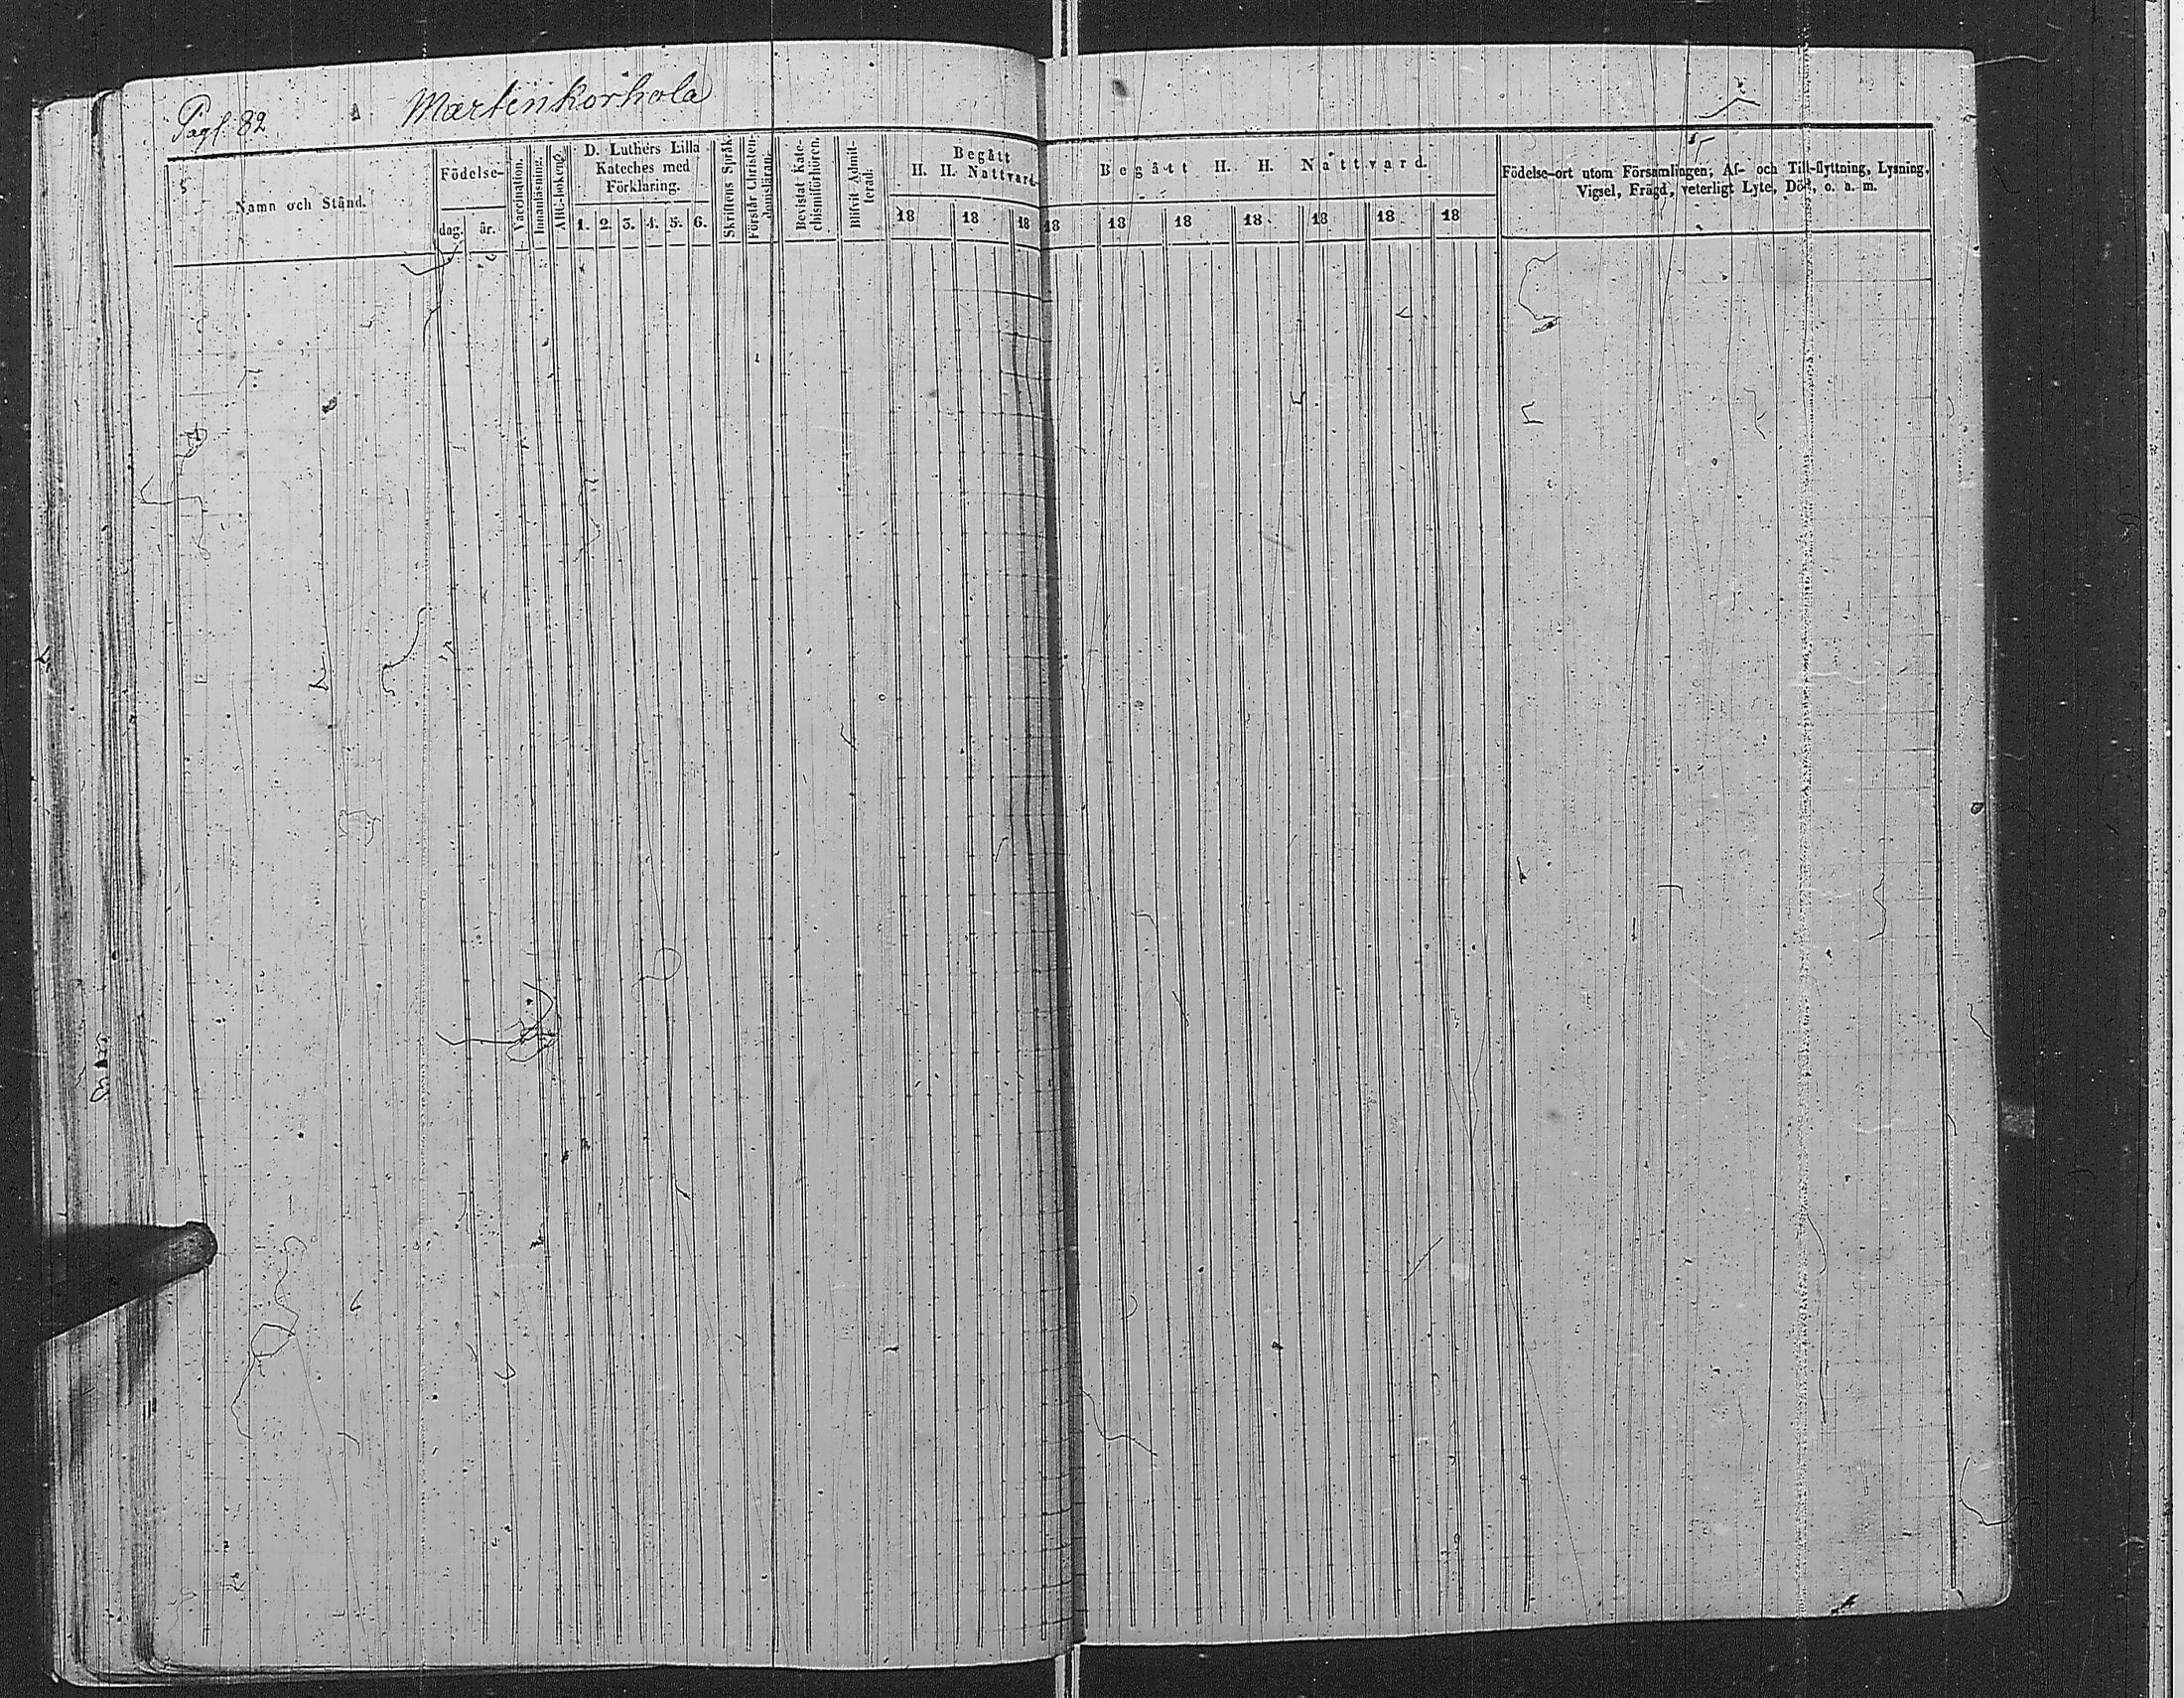 Pag. 82 Mårtenkorhola
Namn och Stånd.
Födelse-
dag. år.
Vaccination.
Innanläsning.
ABC-boken.
D. Luthers Lilla
Kateches med
Förklaring.
1. 2. 3. 4. 5. 6.
Skriftens Språk.
Förstår Christen-
domsläran.
Bevistat Kate-
chismiförhören.
Blifvit Admit-
terad.
Begått
H. H. Nattvard.
18 18 18
Begått H. H. Nattvard.
18 18 18 18 18 18 18
Födelse-ort utom Församlingen, Af- och Till-flyttning, Lysning,
Vigsel, Frägd, veterligt Lyte, Död, o. a. m.